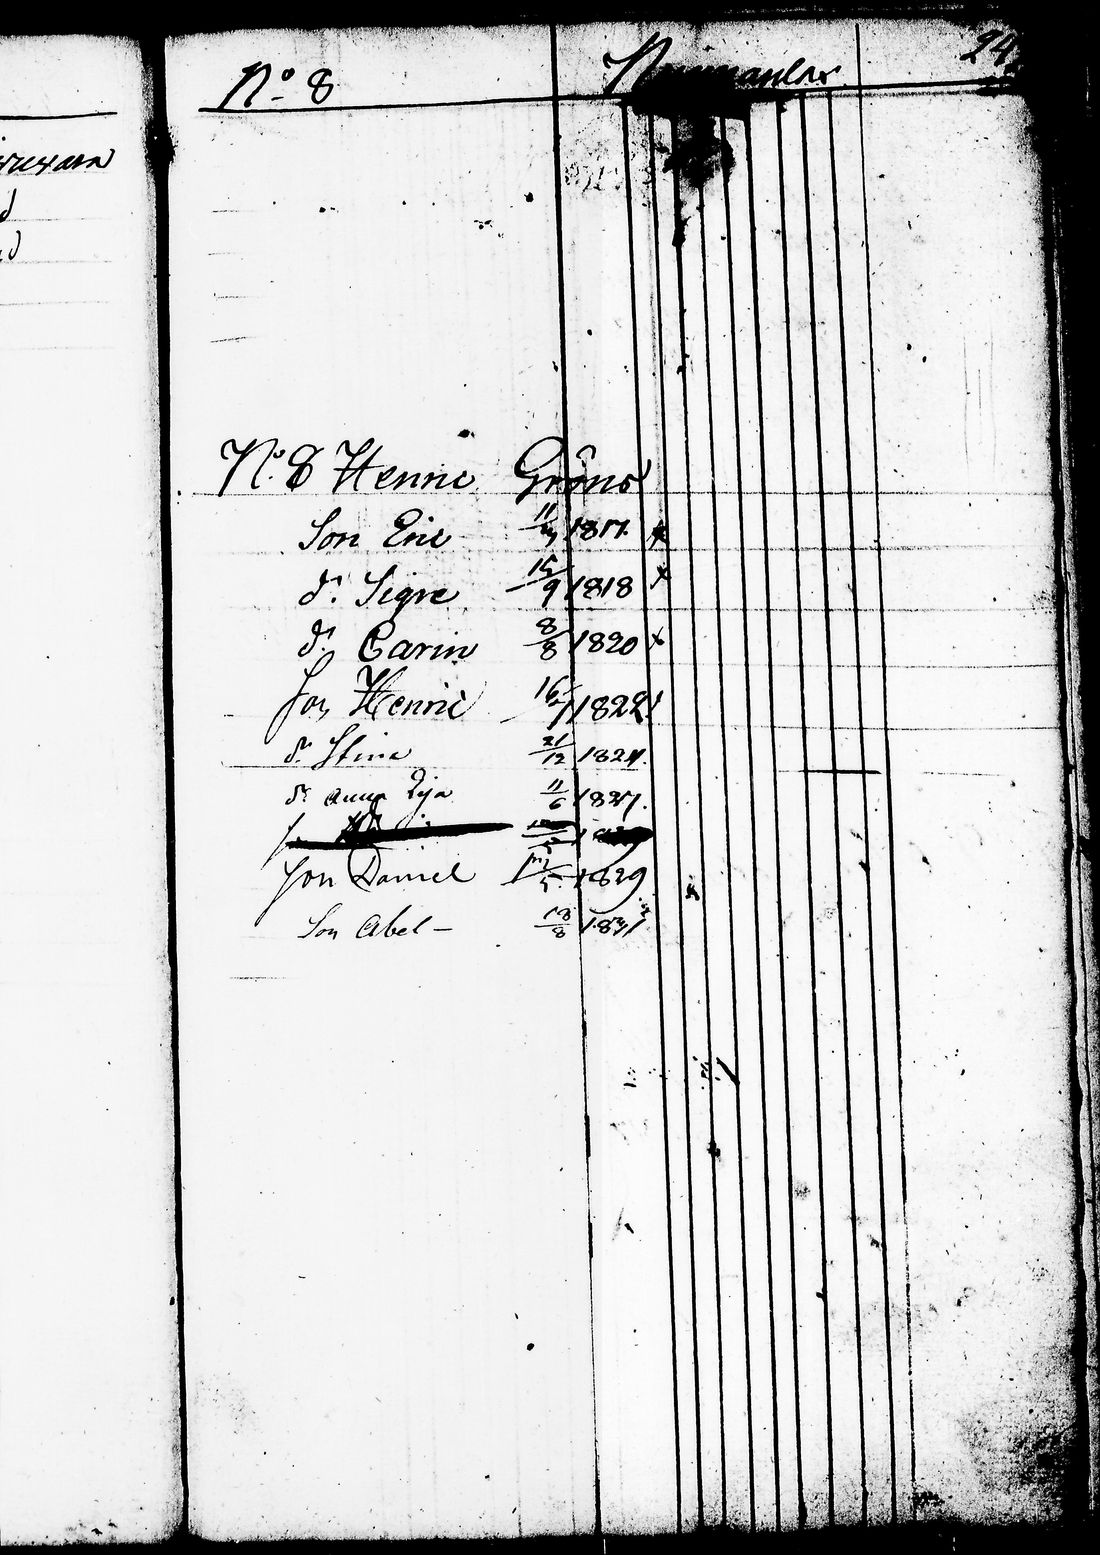 24
No 8
No 8 Henric Gröns
Son Eric 11 1817 x
dr. Sigre 15/9 1818 x
dr. Carin 8/8 1820 x
Son Henric 16/7 1822
dr. Stina 21/12 1824.
dr. Anna Lija 11/6 1827.
Son Daniel 1829
Son Abel – 18/8 1831